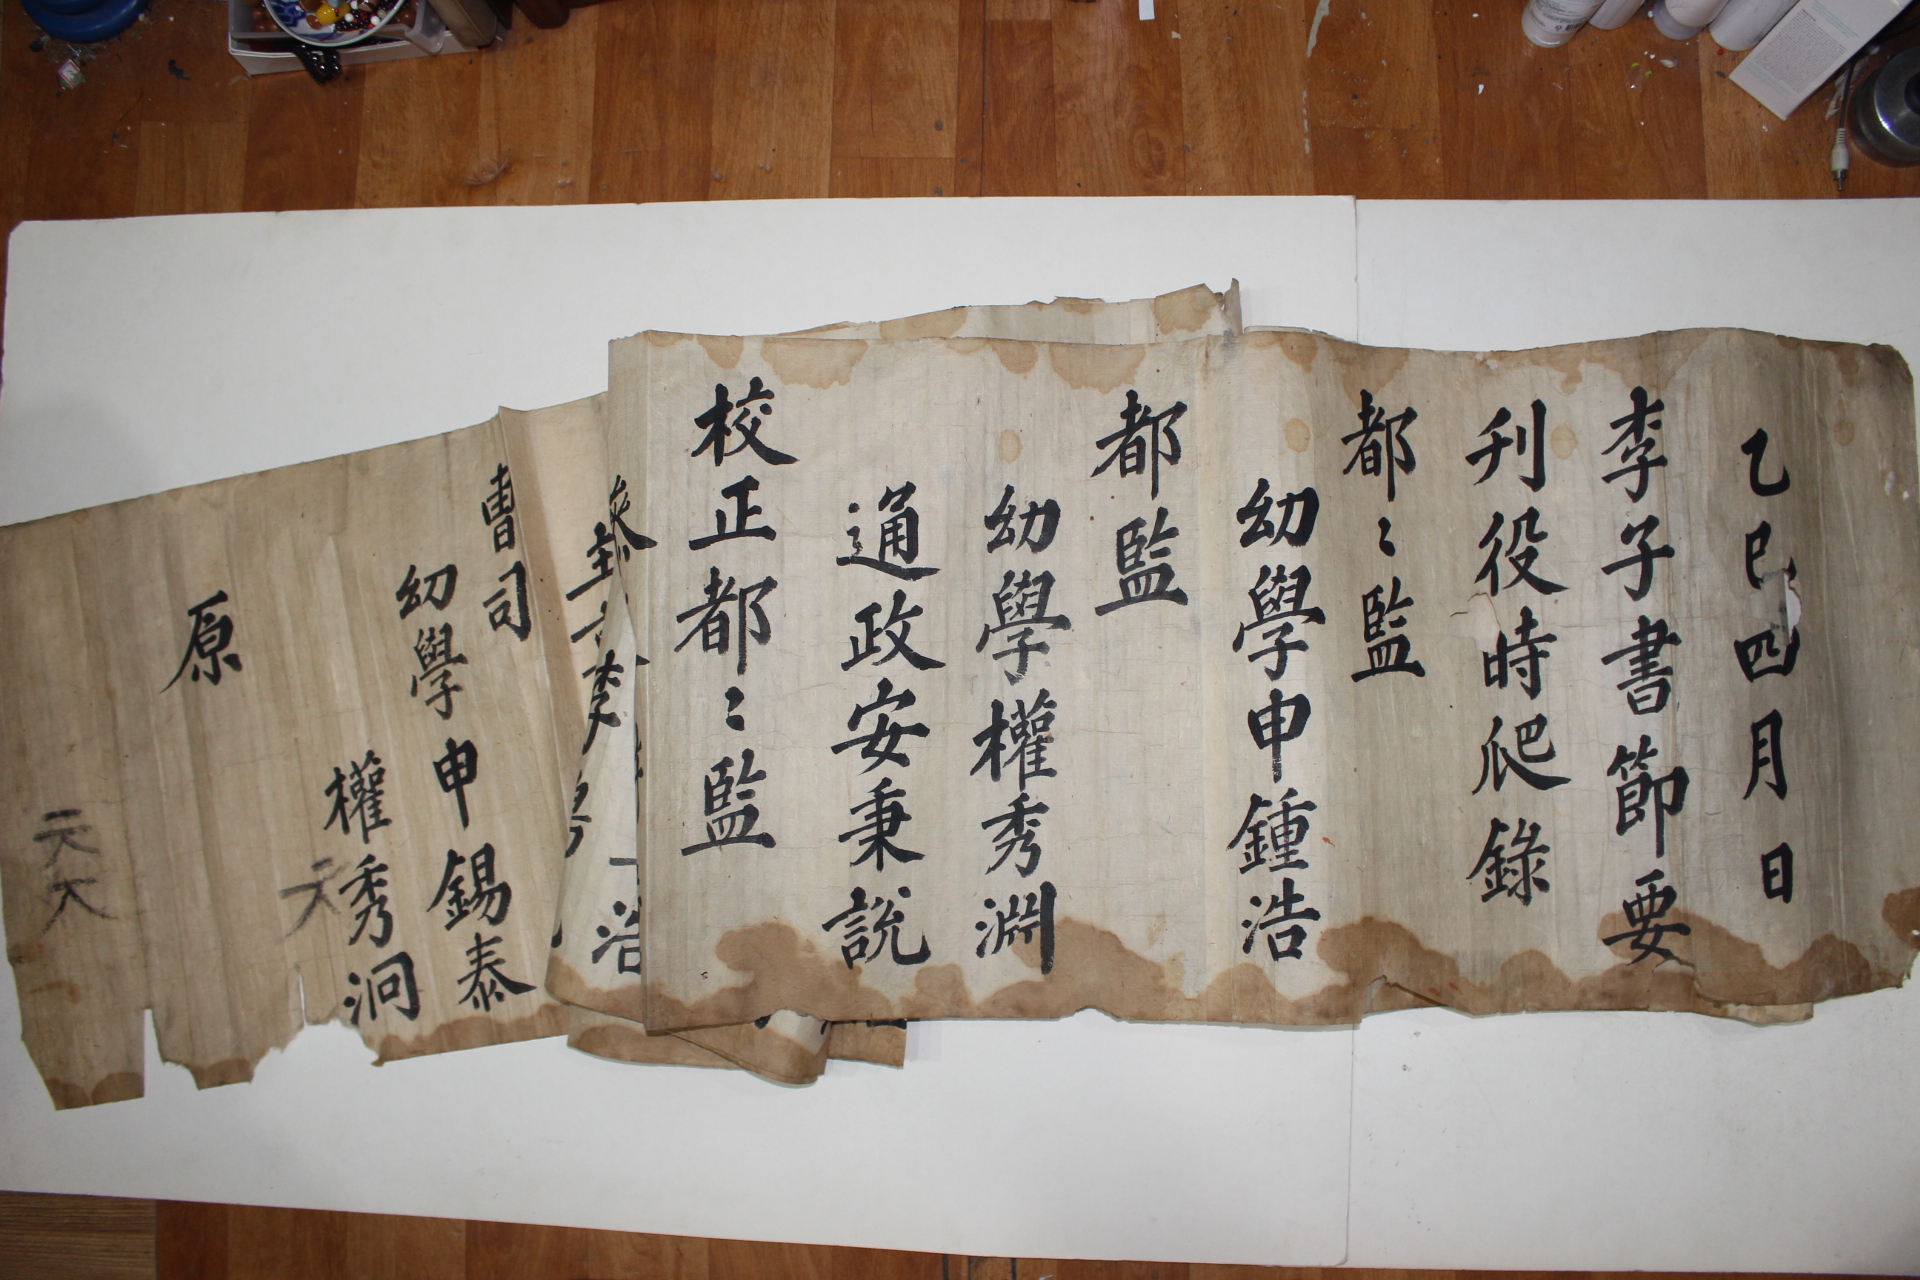 乙巳四月日
李子書節要
刋役時爬錄
都〻監
幼學申鍾浩
都監
幼學權秀淵
通政安秉說
校正都〻監
浩
曺司
幼學申錫泰
權秀泂
原